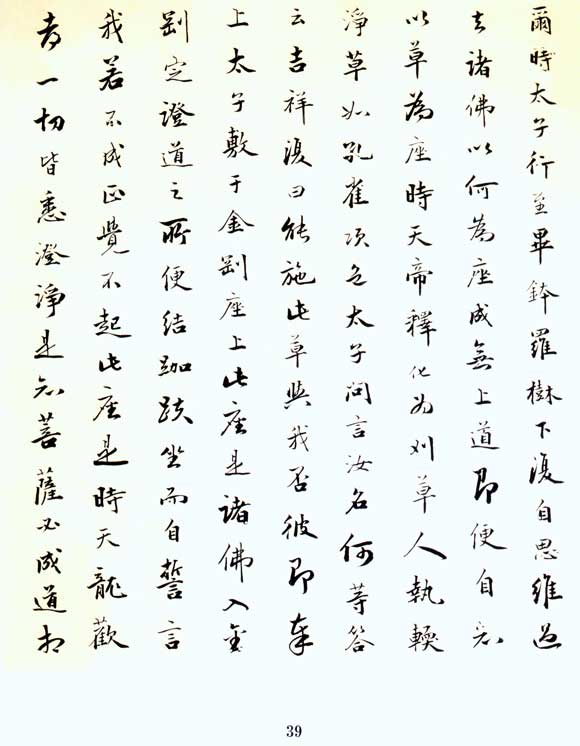 爾時太子行至畢鉢羅樹下復自思維過
去諸佛以何為座成無上道即便自知
以草為座時天帝釋化为刈草人執輭
淨草如孔雀項色太子问言汝名何等答
云吉祥復曰能施此草與我否彼即奉
上太子敷于金剛座上此座是諸佛入金
剛定證道之所便结跏趺坐而自誓言
我若不成正覺不起此座是時天龍歡
喜一切皆悉澄淨是知菩薩必成道相
39